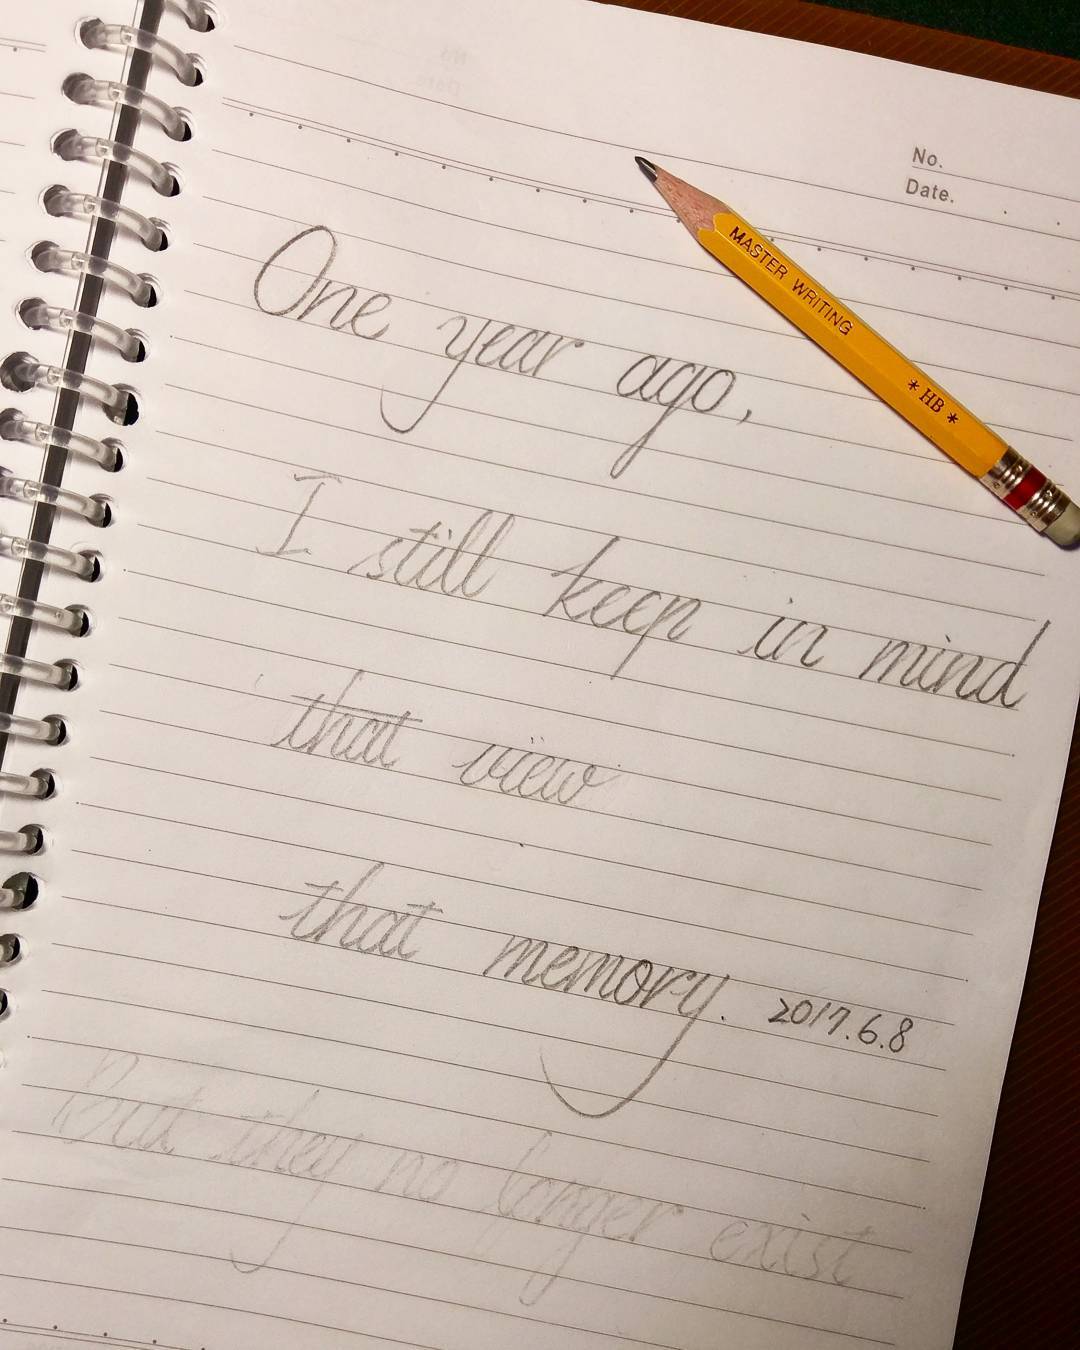 No.
Date.
MASTER WRITING
* HB *
One year ago,
I still keep in mind
that view
that memory. 2017.6.8
But they no longer exist